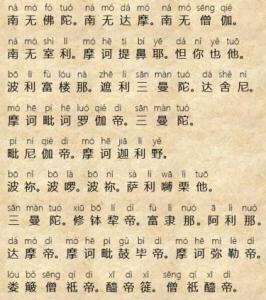 nā mó fó tuó nā mó dá mó nā mó sēng qié
南无佛陀。南无达摩。南无僧伽。
nā mó shì lì mó hē tí bí yē dá nǐ yě tuō
南无室利。摩诃提鼻耶。怛你也他。
bō lì fù lóu nà zhē lì sān màn tuó dá shě ní
波利富楼那。遮利三曼陀。达舍尼。
mó hē pí hē luó qié dì sān màn tuó
摩诃毗诃罗伽帝。三曼陀。
pí ní qié dì mó hē jiā lì yě
毗尼伽帝。摩诃迦利野。
bō nǐ bō là bō nǐ sà lì wā lì tuō
波祢。波啰。波祢。萨利嚩栗他。
sān màn tuó xiū bō lí dì fù lì nà ā lì nà
三曼陀。修钵犁帝。富隶那。阿利那。
dá mó dì mó hē pí gǔ bì dì mó hē mí lè dì
达摩帝。摩诃毗鼓毕帝。摩诃弥勒帝。
lóu bǒ sēng qí dì xī dì xǐ sēng qí xī dì
娄簸僧祇帝。醯帝簁。僧祇醯帝。